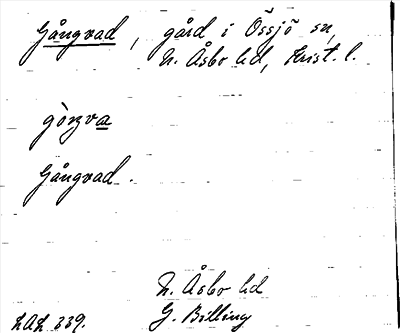 Gångvad, gård i Össjö sn,
N. Åsbo hd, Krist. l.
gòŋva
Gångvad.
N. Åsbo hd
LAL 339. G. Billing